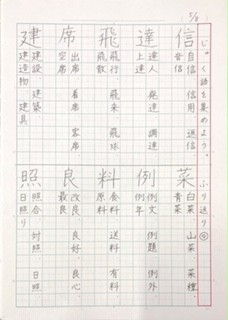 5/8
じゅく語を集めよう。 ふり返り◎
信 自信、信用、返信、
音信
菜 白菜、山菜、菜種、
青菜
達 達人、発達、調達、
上達
例 例文、例題、例外、
例年
飛 飛行、飛来、飛球、
飛散
料 食料、送料、有料、
原料
席 出席、着席、客席、
空席
良 改良、良好、良心、
最良
建 建設、建築、建具、
建造物
照 照合、対照、日照、
日照り